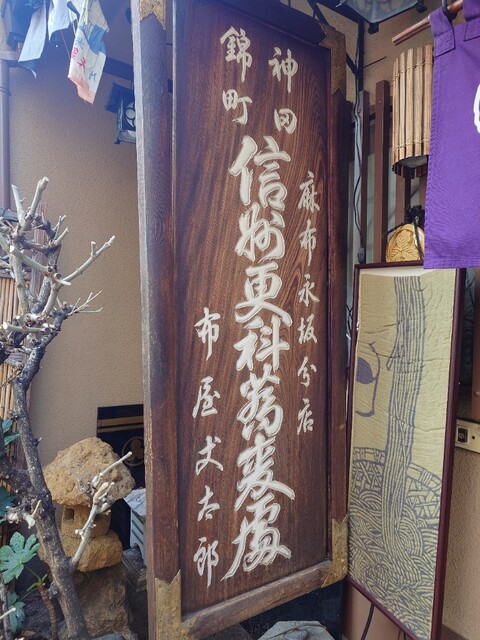 神田
錦町
麻布永坂分店
信州更科蕎麦處
布屋丈太郎